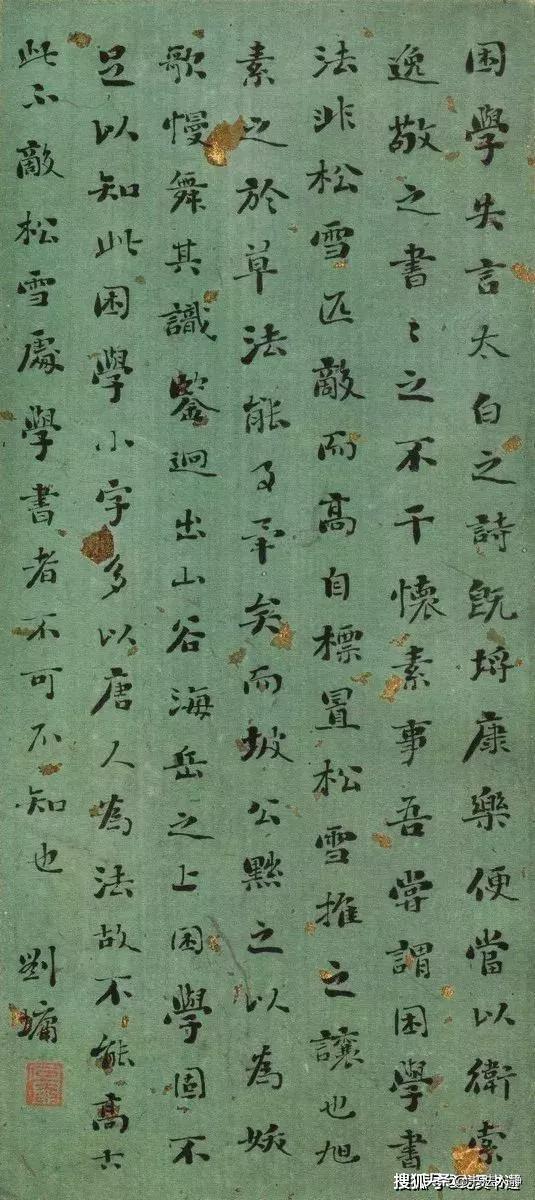 困學失言太白之詩既埒康樂便當以衛索
逸敬之書〻之不干懷素事吾嘗謂困學書
法非松雪匹敵而高自標置松雪推之讓也旭
素之於草法能矣而坡公黜之以為妖
歌慢舞其識鑒迥出山谷海岳之上困學固不
足以知此困學小字多以唐人為法故不能高古
此不敵松雪處學書者不可不知也 劉墉